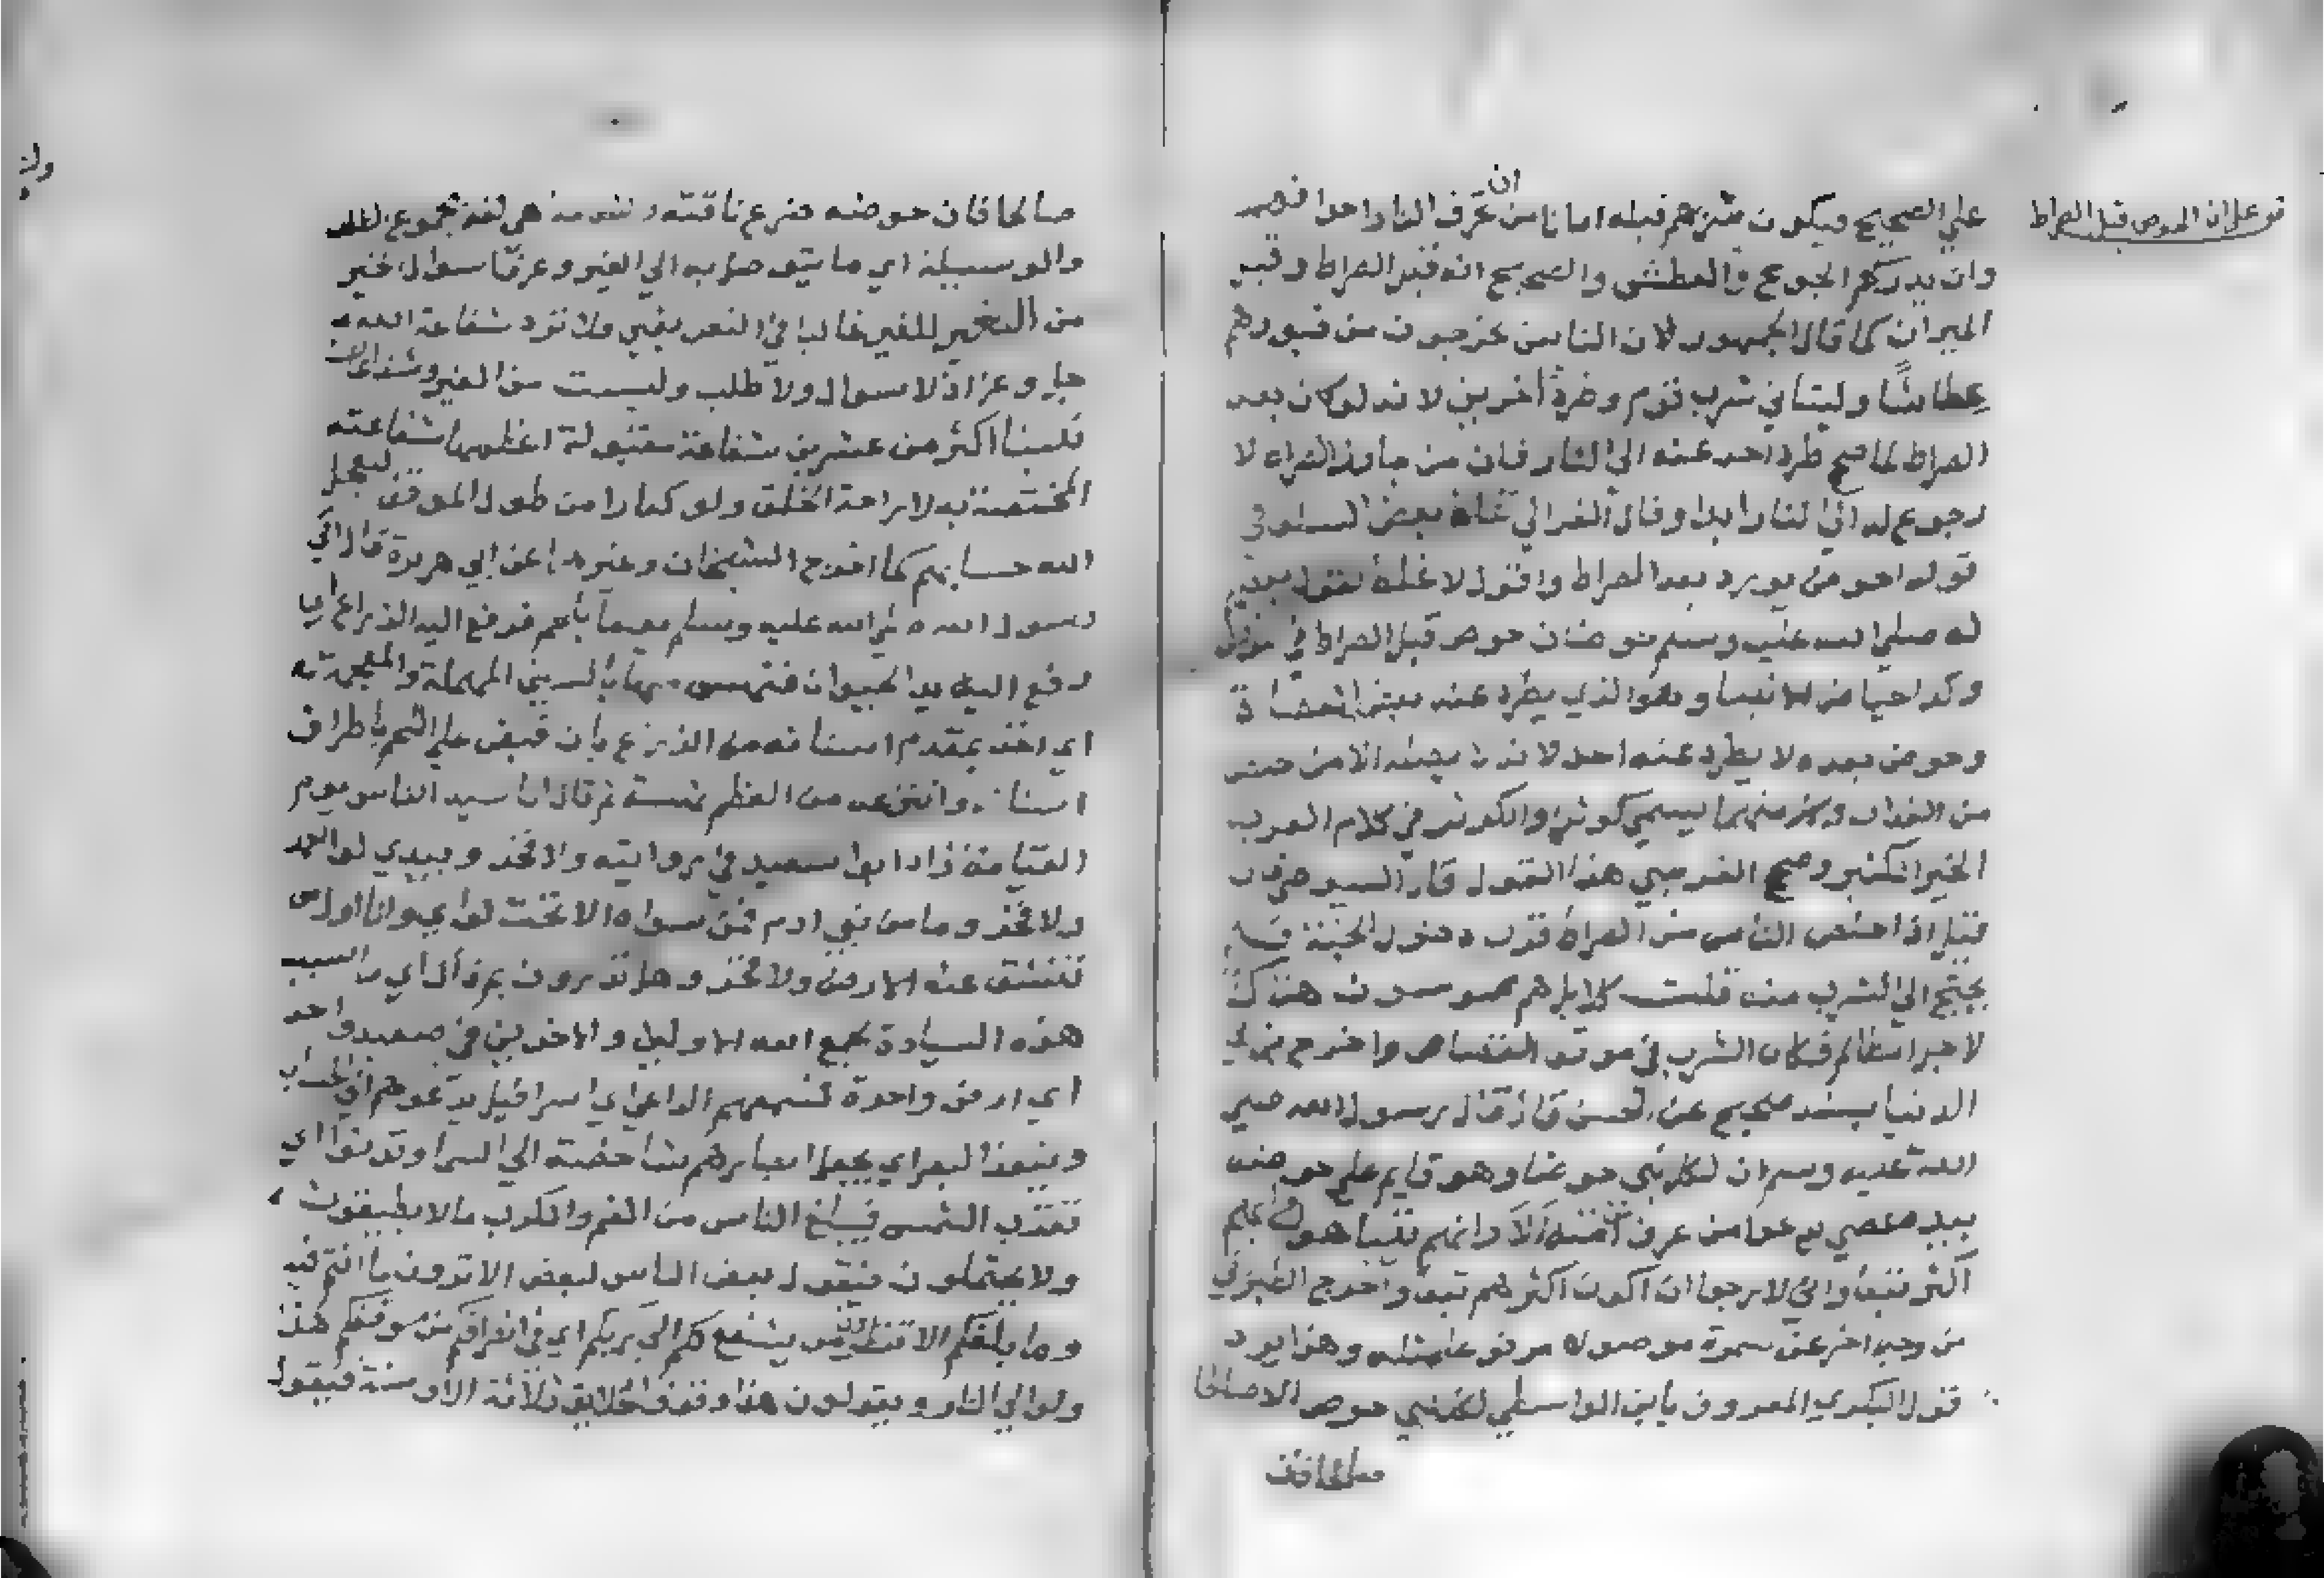 قو على ان الحوض قبل الصراط
علي الصحيح ويكون شربهم قبله امانا من ان عرف النار احدا منهم
وان يدركهم الجوع والعطش والصحيح انه قبل الصراط وقبل
الميزان كما قال الجمهور لان الناس يخرجون من قبورهم
عطاشا وليتاتي شرب قوم وطرد اخرين لانه لو كان بعد
الصراط لما صح طرد احد عنه الي النار فان من جاوز الصراط لا
رجوع له الي النار ابدا وقال الغزالي غلط بعض السلف في
قوله الحوض يورد بعد الصراط واقول لا غلط نقول بعضهم
له صلي الله عليه وسلم حوضان حوض قبل الصراط في
وكذا حياض الانبيا وهو الذي يطرد عنه بعض العصاة
وحوض بعده ولا يطرد عنه احد لانه لا يصله الا من خلص
من العذاب وكل منهما يسمي كوثرا والكوثر في كلام العرب
الخير الكثير وصحح القرطبي هذا القول قال السيوطي فان
قيل اذا خلص الناس من الصراط قرب دخول الجنة فلم
يحتج الي الشرب منه قلت كلا بل هم محبوسون هناك
لاجل المظالم فكان الشرب في موقف القصاص واخرج ابن ابي
الدنيا بسند صحيح عن الحسن قال قال رسول الله صلي
الله عليه وسلم ان لكل نبي حوضا وهو قايم علي حوضه
بيده عصي يدعوا من عرف من امته الا وانهم يتباهون ايهم
اكثر تبعا واني لارجوا ان اكون اكثرهم تبعا واخرج الطبراني
من وجه اخر عن سمرة موصولا مرفوعا مثله وهذا يرد
قول البكري المعروف بابن الواسطي لكل نبي حوض الا صالحا
صالحا فان
صالحا فان حوضه ضرع ناقته هي لغة مجموع الطلب
والوسيلة اي ما يتوصل به الي الغير وعرفا سوال الخير
من الغير للغير غالبا في التعريفين ولا ترد شفاعة الله
جل وعز اذ لا سوال ولا طلب وليست من الغير
فلنبينا اكثر من عشرين شفاعة مقبولة اعظمها شفاعته
المختصة به لاراحة الخلق ولو كفارا من طول الموقف ليعجل
الله حسابهم كما اخرج الشيخان وغيرهما عن ابي هريرة قال اتي
رسول الله صلي الله عليه وسلم يوما بلحم فدفع اليه الذراع اي
رفع اليه يد الحيوان فنهس منها بالسين المهملة والمعجمة
اي اخذ بمقدم اسنانه من الذراع بان قبض علي اللحم باطراف
اسنانه وانتزعه من العظم نهسة ثم قال انا سيد الناس يوم
القيامة زاد ابوا سعيد في روايته ولا فخر وبيدي لوا الحمد
ولا فخر وما من نبي ادم فمن سواه الا تحت لواي وانا اول من
تنشق عنه الارض ولا فخر وهل تدرون بم ذاك اي ما السبب
هذه السيادة يجمع الله الاولين والاخرين في صعيد واحد
اي ارض واحدة فيسمعهم الداعي اي اسرافيل يدعوهم الي الحساب
وينفذ البصر اي يجعل ابصارهم شاخصة الي السما وتدنوا اي
تقترب الشمس فيبلغ الناس من الغم والكرب ما لا يطيقون
ولا يحتملون فيقول بعض الناس لبعض الا ترون ما انتم فيه
وما بلغكم الا تنظرون من يشفع لكم الي ربكم اي في انصرافكم من موقفكم هذا
ولو الي النار ويقولون هذا وقف الخلايق ثلاثة الاف سنة فيقول